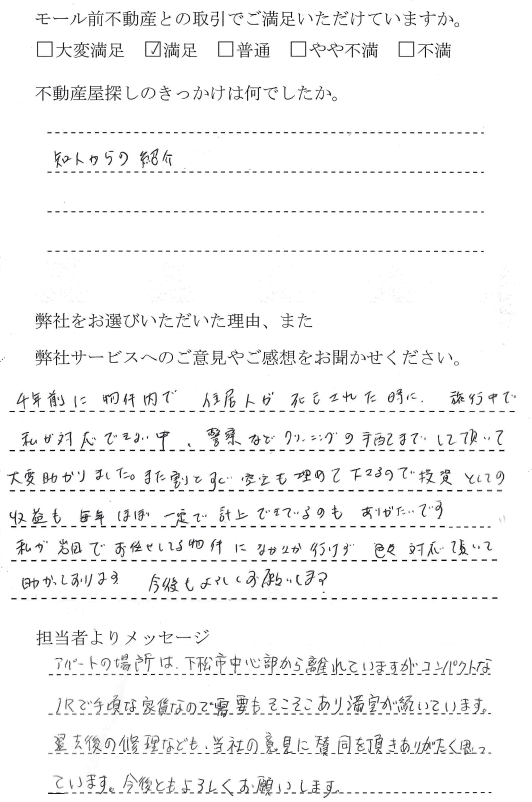 モール前不動産との取引でご満足いただけていますか。
□大変満足 ☑満足 □普通 □やや不満 □不満
不動産屋探しのきっかけは何でしたか。
知人からの紹介
弊社をお選びいただいた理由、また
弊社サービスへのご意見やご感想をお聞かせください。
4年前に物件内で 住居人が 死亡された時に、旅行中で
私が対応できない中、警察などクリーニングの手配までして頂いて
大変助かりました。また割とすぐ空室も埋めて下さるので投資としての
収益も毎年ほぼ一定で計上できているのもありがたいです
私が岩国でお任せしてる物件になかなか行けず 色々対応頂いて
助かっております 今後もよろしくお願いします
担当者よりメッセージ
アパートの場所は、下松市中心部から離れていますがコンパクトな
1Rで手頃な家賃なので需要もそこそこあり満室が続いています。
退去後の修理なども、当社の意見に賛同を頂きありがたく思っ
ています。今後ともよろしくお願いします。